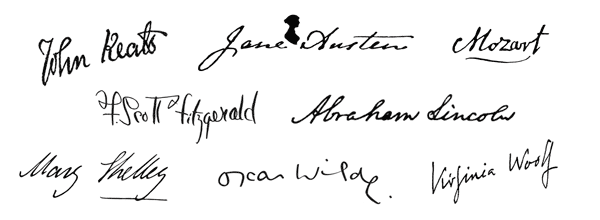 John Keats Jane Austen Mozart
F. Scott Fitzgerald Abraham Lincoln
Mary Shelley Oscar Wilde. Virginia Woolf